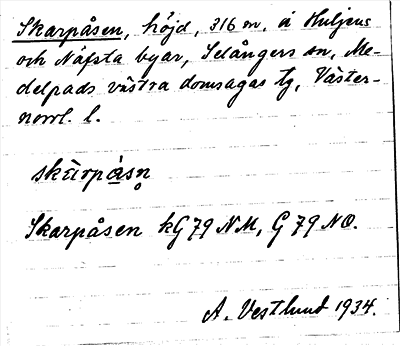 Skarpåsen, höjd, 316 m. å Huljens
och Näfsta byar, Selångers sn, Me-
delpads västra domsagas tg, Väster-
norrl. l.
skàrpåsn̥
Skarpåsen kG 79 NM, G 79 NO.
A. Vestlund 1934.